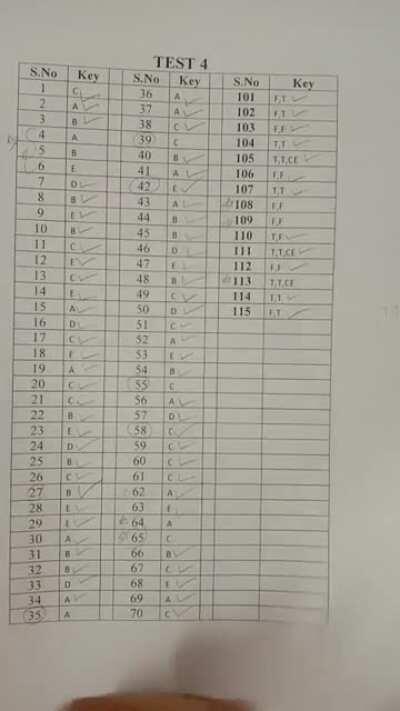 TEST 4
S.No Key S.No Key S.No Key
1 C 36 A 101 F,T
2 A 37 A 102 F,T
3 B 38 C 103 F,F
4 A 39 C 104 T,T
5 B 40 B 105 T,T,CE
6 E 41 A 106 F,F
7 D 42 E 107 T,T
8 B 43 A 108 F,F
9 E 44 B 109 F,F
10 B 45 B 110 T,F
11 C 46 D 111 T,T,CE
12 E 47 E 112 F,F
13 C 48 B 113 T,T,CE
14 E 49 C 114 T,T
15 A 50 D 115 F,T
16 D 51 C
17 C 52 A
18 53 E
19 A 54 B
20 C 55 C
21 C 56 A
22 B 57 D
23 E 58 C
24 D 59 C
25 B 60 C
26 C 61 C
27 B 62 A
28 E 63 E
29 E 64 A
30 A 65 C
31 B 66 B
32 B 67 C
33 D 68 E
34 A 69 A
35 A 70 C